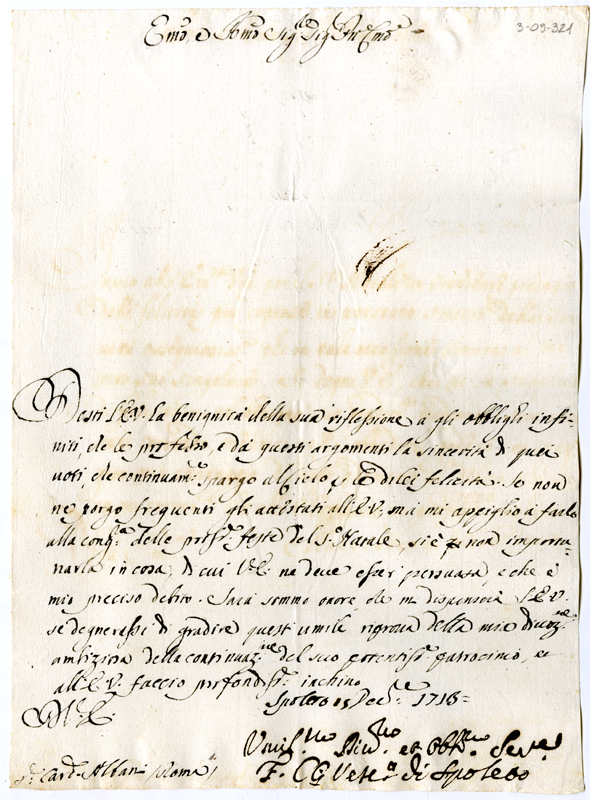 3-09-321
Emo, e Rmo Sigr Sigr Prñe Emo
Desti l'E.V. la benignità della sua riflessione à gli obblighi infi-
niti, che le professo, e dà questi argomenti la sincerità di quei
voti, che continuam.e spargo al Cielo p le di lei felicità. Io non
ne porgo frequenti gli attestati all'E.V., mà mi appiglio à farlo
alla cong.ra delle pross.e feste del S. Natale, si è p non importu-
narla in cosa, di cui V.E. ne deve esser persuasa, e che è
mio preciso debito. Sarà sommo onore, che mi dispenserà l'E.V.
se degnerassi di gradire questi umile riprova della mia divoz.ne
ambiziosa della continuaz.ne del suo potentiss.o patrocinio, et
all'E.V. faccio profondiss.o inchino
Spoleto 15 Dec.re 1718=
D.V.E.
Umil.mo Div.mo et Obb.mo Serre
F. C. Vesc.o di Spoleto
S.r Card. Albani Roma